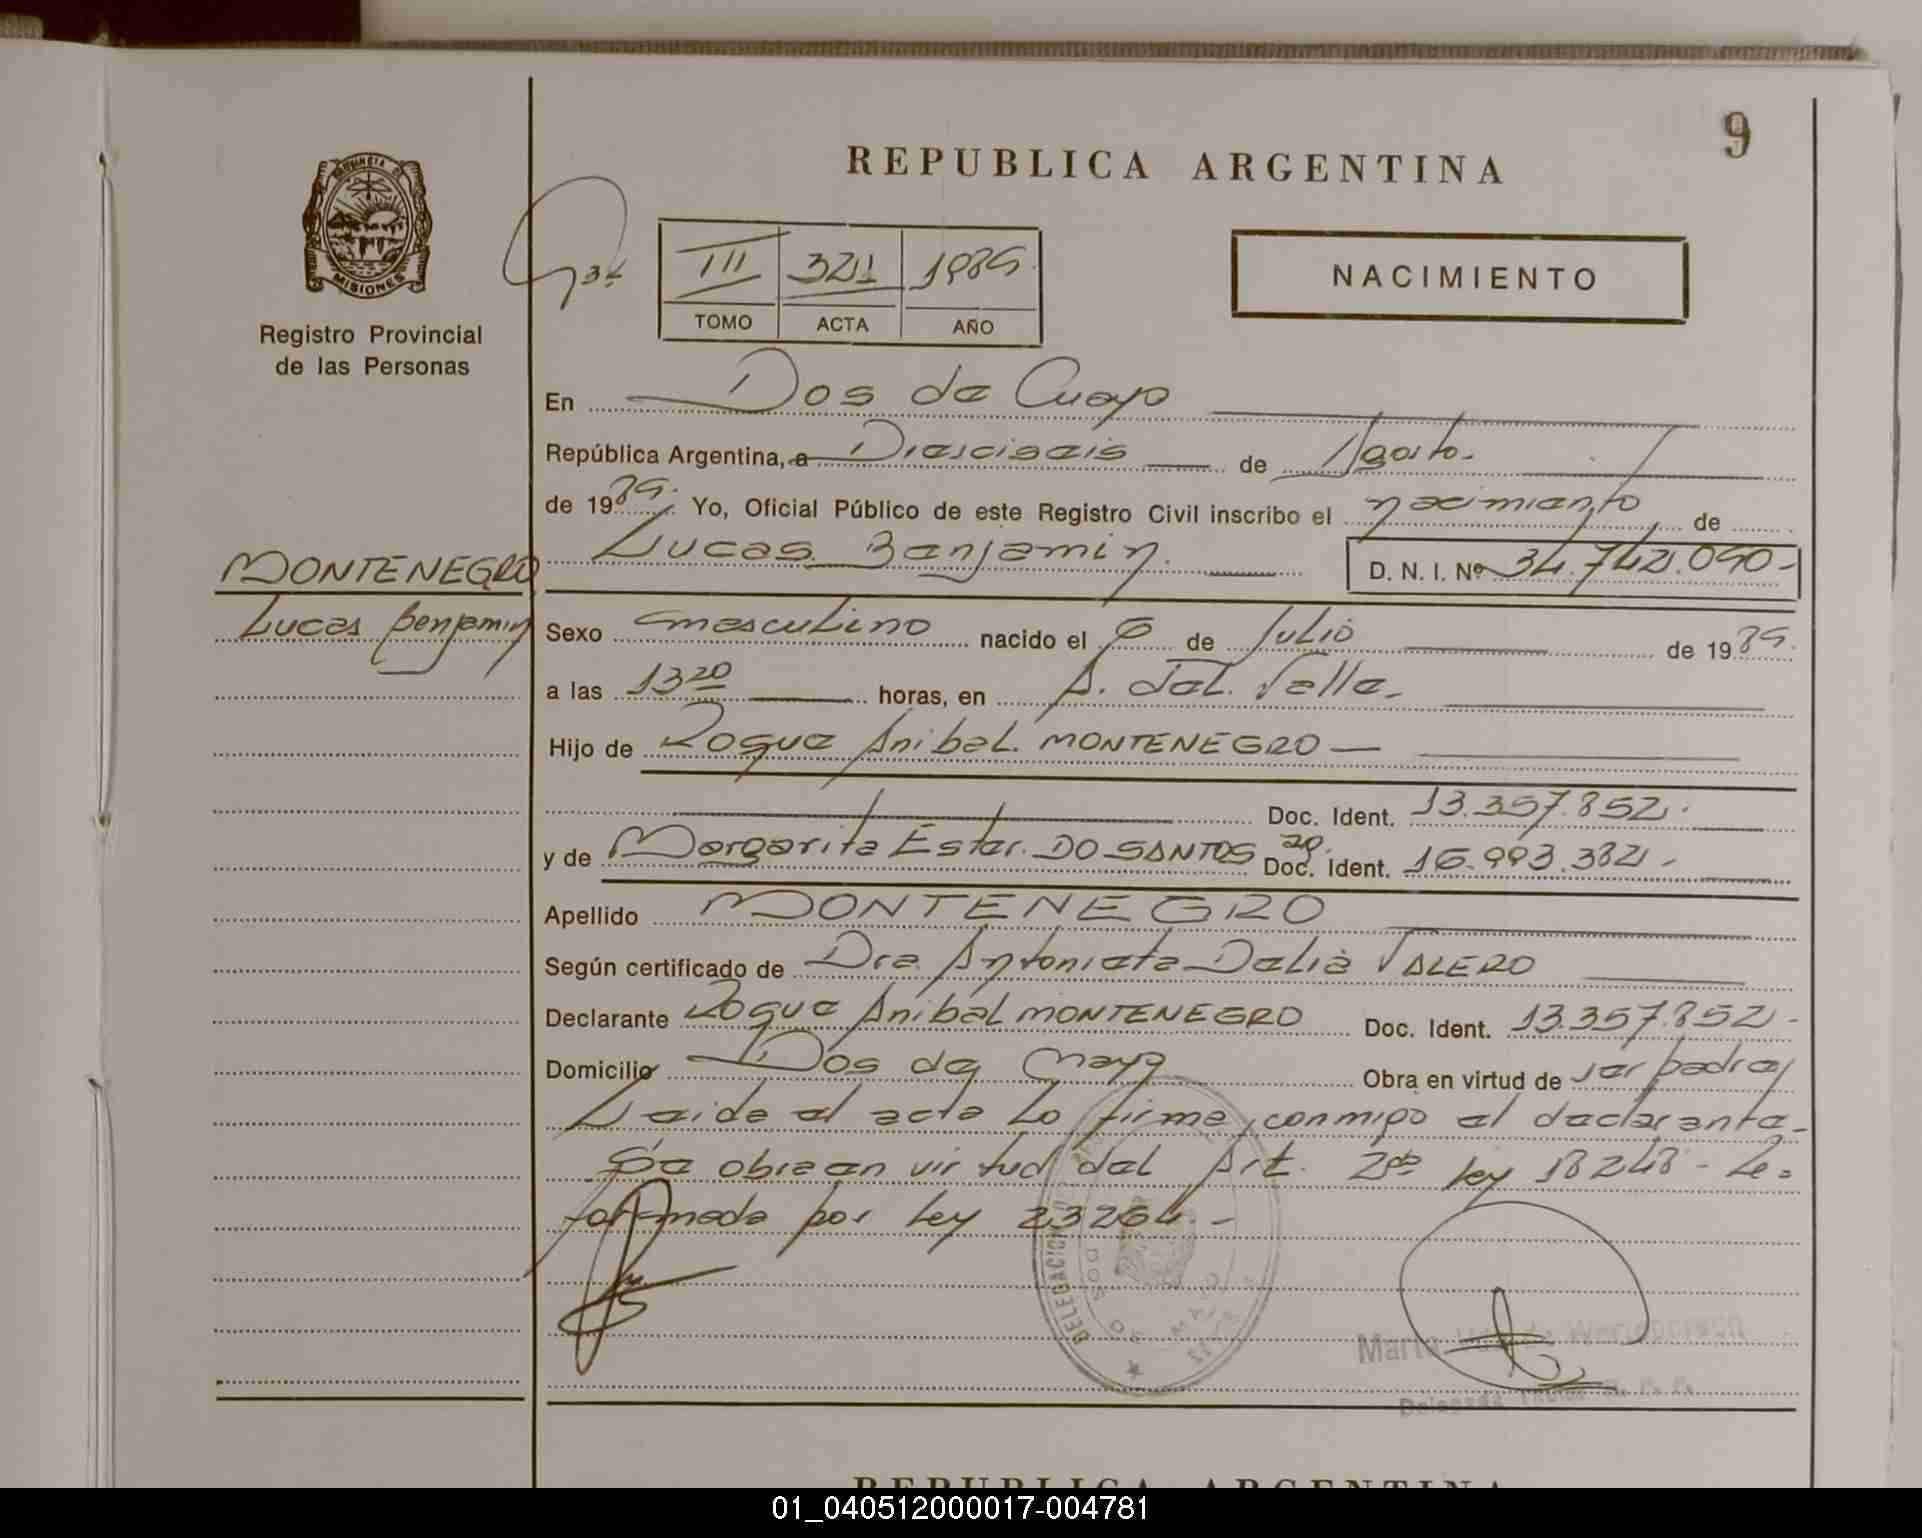 9
REPUBLICA ARGENTINA
PROVINCIA DE
MISIONES
Registro Provincial
de las Personas
III 321 1989
TOMO ACTA AÑO
NACIMIENTO
En Dos de Mayo
República Argentina, a Dieciseis de Agosto.
de 1989. Yo, Oficial Público de este Registro Civil inscribo el nacimiento de
Lucas Benjamin. D. N. I. Nº 34.742.090-
MONTENEGRO
Lucas Benjamin
Sexo masculino nacido el 6 de Julio de 1989.
a las 13 20 horas, en A. del. Valle.
Hijo de Roque Anibal. MONTENEGRO
Doc. Ident. 13.357.852.
y de Margarita Ester. DO SANTOS Doc. Ident. 16.993.382.
Apellido MONTENEGRO
Según certificado de Dra Antonieta Dalia VALERO
Declarante Roque Anibal MONTENEGRO Doc. Ident. 13.357.852-
Domicilio Dos de Mayo Obra en virtud de ser padre
Leida el acta Lo firma conmigo el declarante-
Se obra en virtud del Art. 2do Ley 18248- Re=
formada por Ley 23264.-
DELEGACION
DOS DE MAYO
REPUBLICA ARGENTINA
01_040512000017-004781